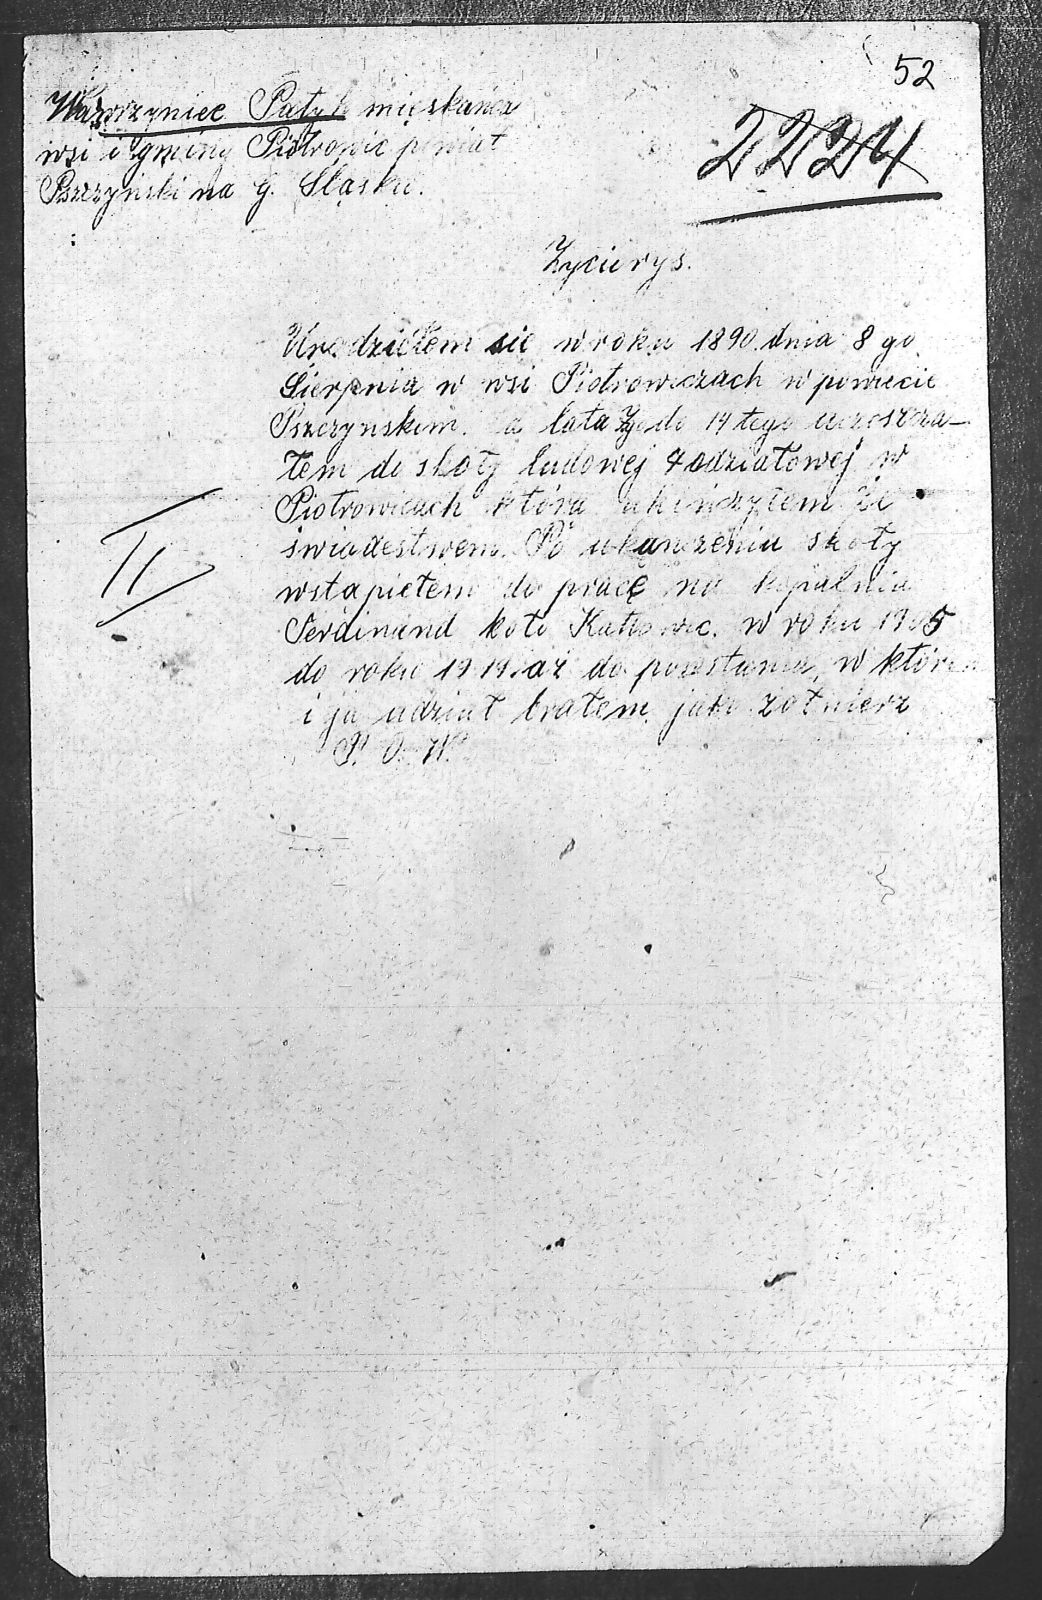 52
2224
Wawrzyniec Patyk mięskańca
wsi i gminy Piotrowic powiat
Pszczyński na G. Śląsku.
Życiorys.
Urodziełem sie w roku 1890 dnia 8 go
Sierpnia w wsi Piotrowiczach w powiecie
Pszczynskim. lata do 14 tego uczeszcza-
łem do skoły ludowej 4 odziałowej w
Piotrowicach która ukończyłem ze
świadestwem. Po ukunczeniu skoły
wstąpiełem do pracę na kopalnia
Ferdinand koło Kattowic. w roku 1905
do roku 1919. aż do powstania, w któr
i ja udział brałem jako żołnierz
P. O. W.
II